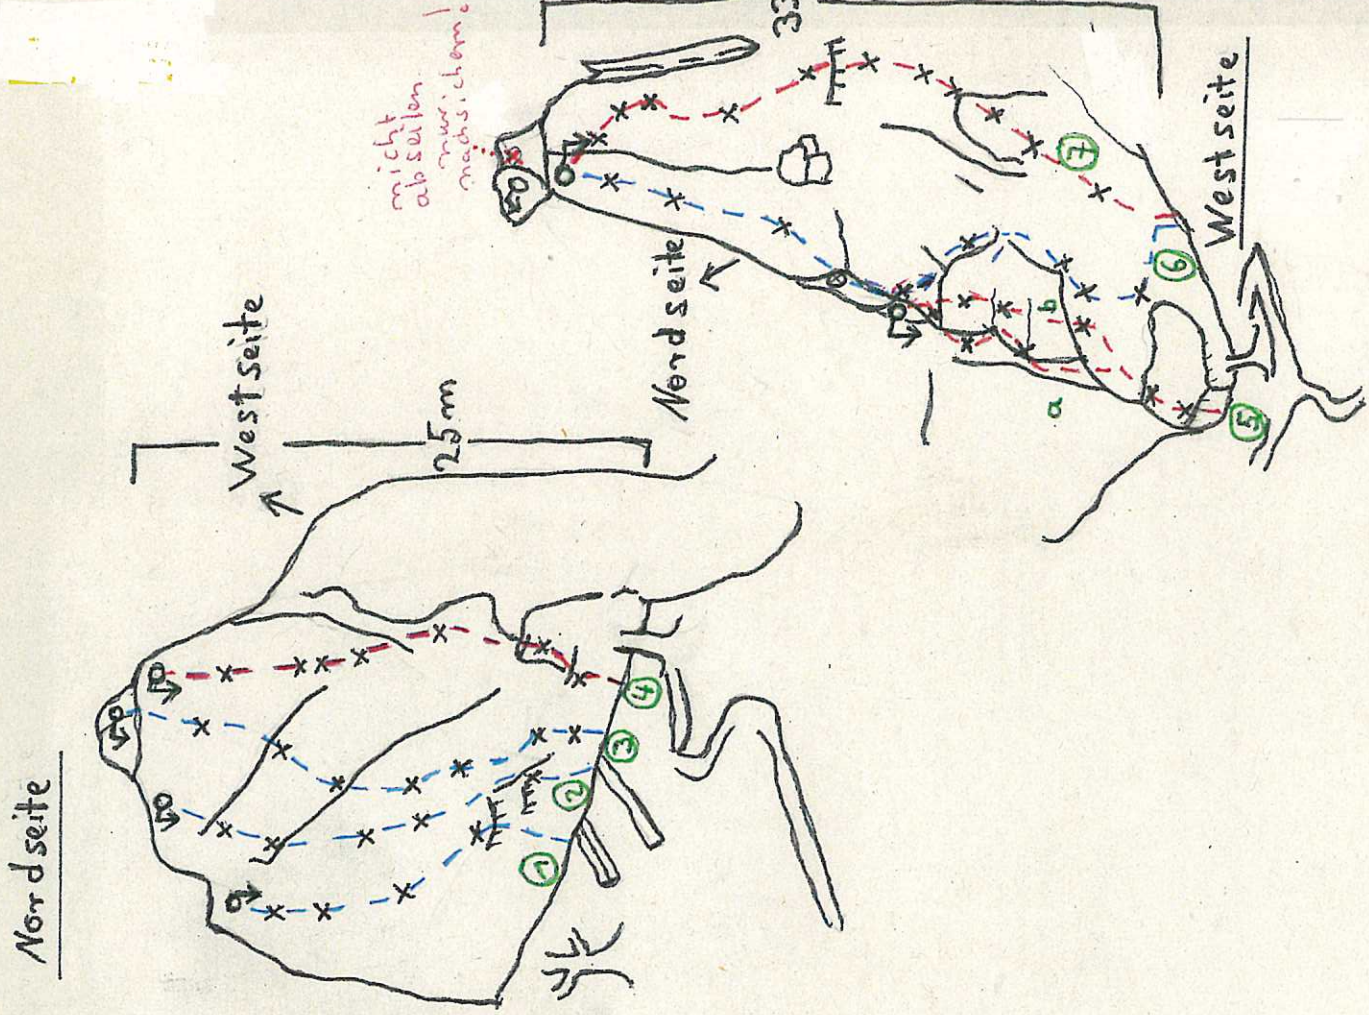 Nordseite
Westseite
25m
1
2
3
4
nicht
abseilen
nur
nachsichern!
Nordseite
Westseite
a
b
5
6
7